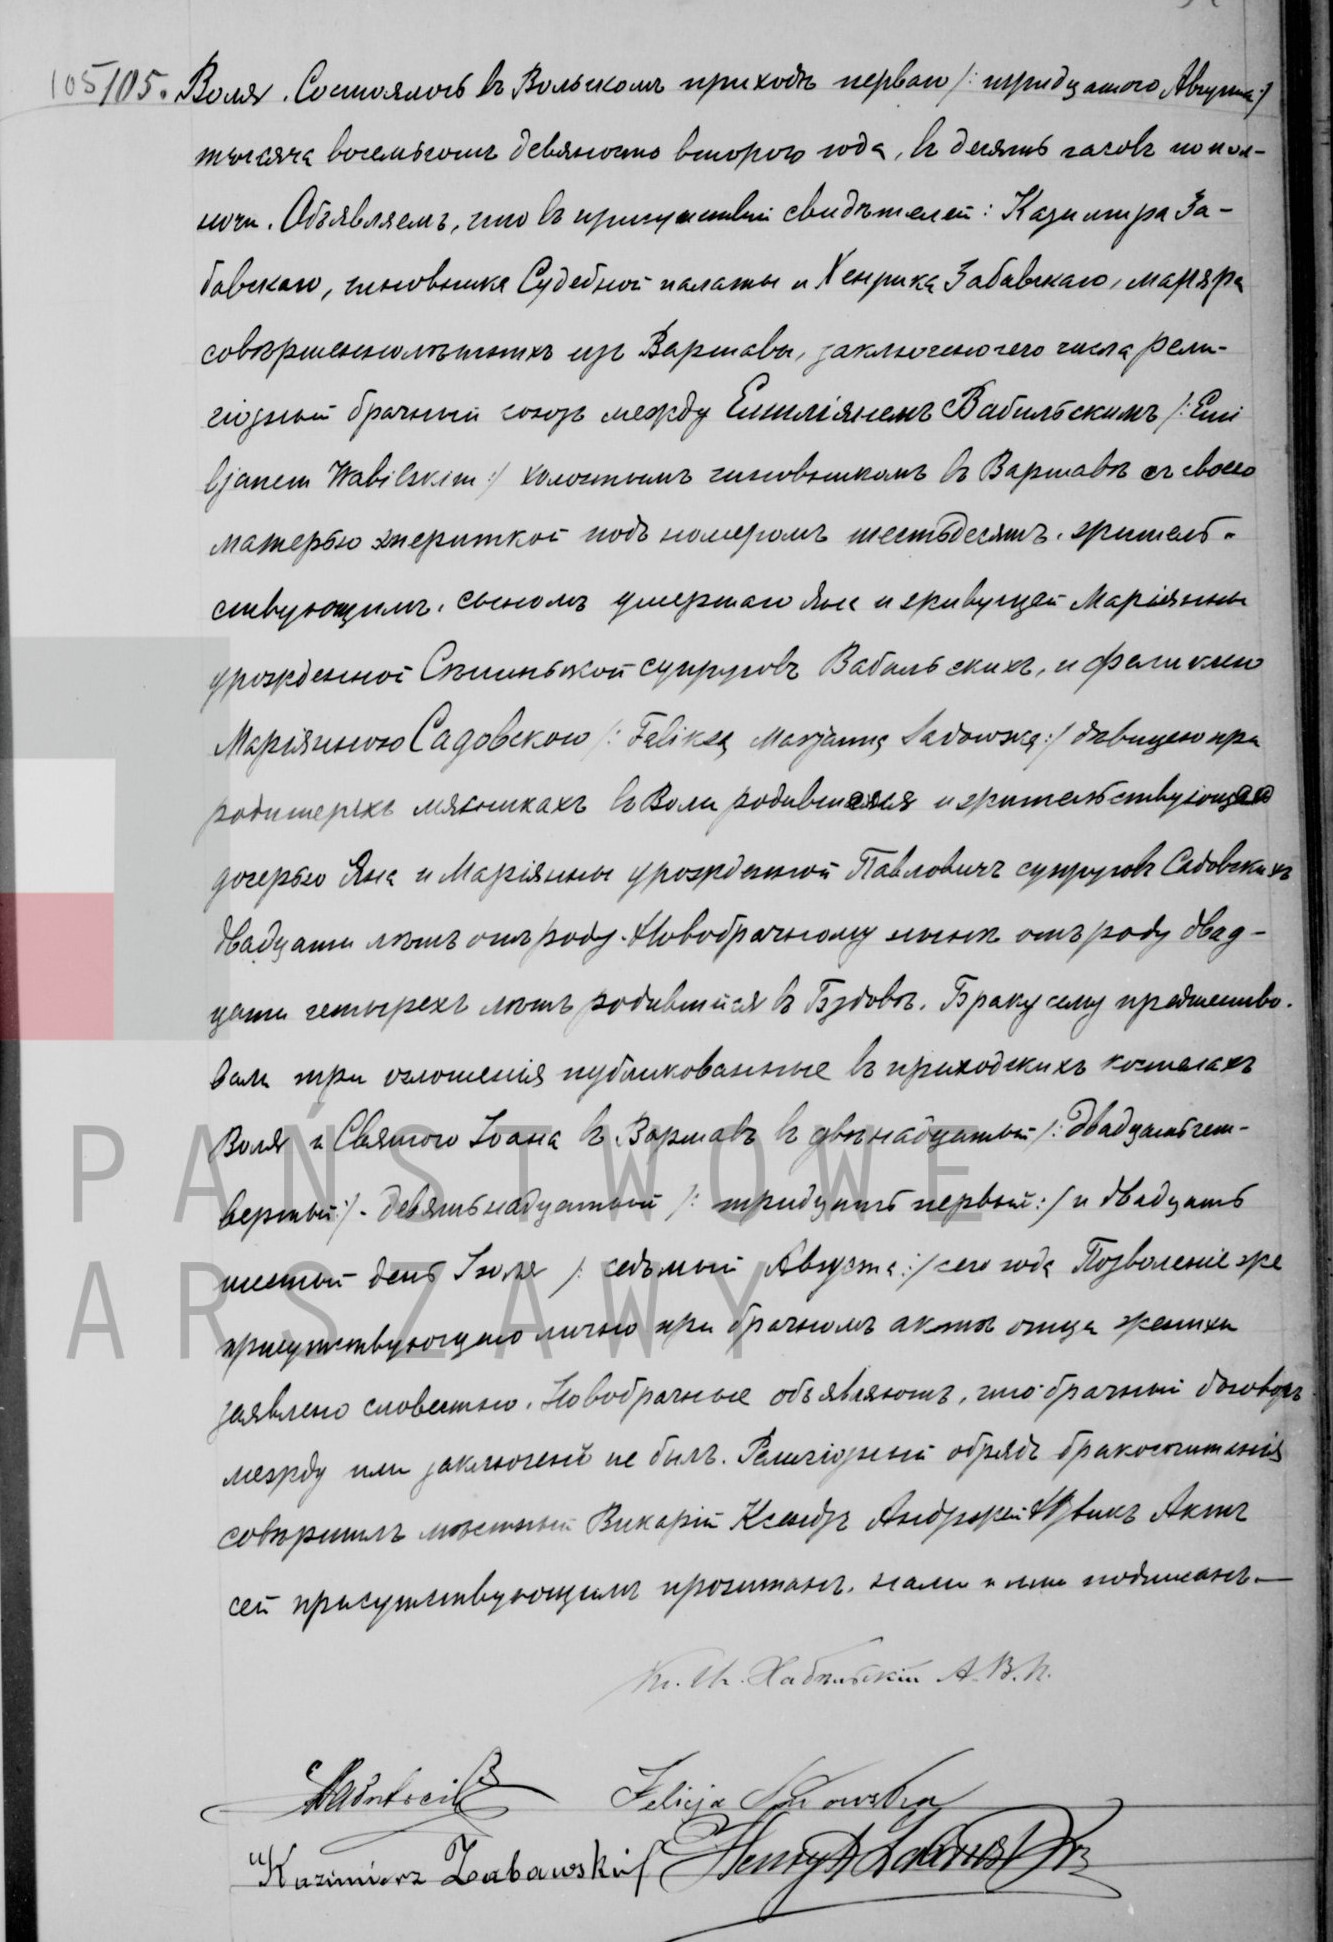 105/105. Воля. Состоялось въ Вольскомъ приходѣ перваго /: тридцатаго Августа :/
тысяча восемьсотъ девяносто втораго года, въ десять часовъ по пол-
ночи. Объявляемъ, что въ присутствіи свидѣтелей: Казимира За-
бавскаго, чиновника Судебной палаты и Хенрика Забавскаго, маляра
совершеннолѣтнихъ изъ Варшавы, заключено сего числа рели-
гіозный брачный союзъ между Емиліянемъ Вабильскимъ /: Emi
ljanem Wabilskim :/ холостымъ чиновникомъ въ Варшавѣ съ своею
матерью подъ номеромъ шестьдесятъ. жительст-
ствующимъ, сыномъ умершаго Яна и живущей Маріянны
урожденной супруговъ Вабильскихъ, и Феликсою
Маріянною Садовскою /: Feliksą Marjanną Sadowską :/ дѣвицею при
родителяхъ мясникахъ въ Воли родившеюся и жительствующею
дочерью Яна и Маріянны урожденной Павловичъ супруговъ Садовскихъ
двадцати лѣтъ отъ роду. Новобрачному нынѣ отъ роду двад-
цати четырехъ лѣтъ родившійся въ. Браку сему предшество-
вали три оглошенія публикованные въ приходскихъ костелахъ
Воля и Святого Іоана въ Варшавѣ въ двѣнадцатый /: двадцать чет-
вертый :/ - девятьнадцатый /: тридцать первый :/ и двадцать
шестый день Іюля /: седьмый Августа :/ сего года Позволеніе же
присутствующаго лично при брачномъ актѣ отца жениха
заявлено словестно. Новобрачные объявляютъ, что брачный договоръ
между ими заключенъ не былъ. Религіозный обрядъ бракосочитанія
совершилъ мѣстный Викарій Ксендзъ Андржей Актъ
сей присутствующимъ прочитанъ, нами и ими подписанъ.—
А. В. П.
Felicja Sadowska
Kazimierz Zabawski Henryk Zabawski